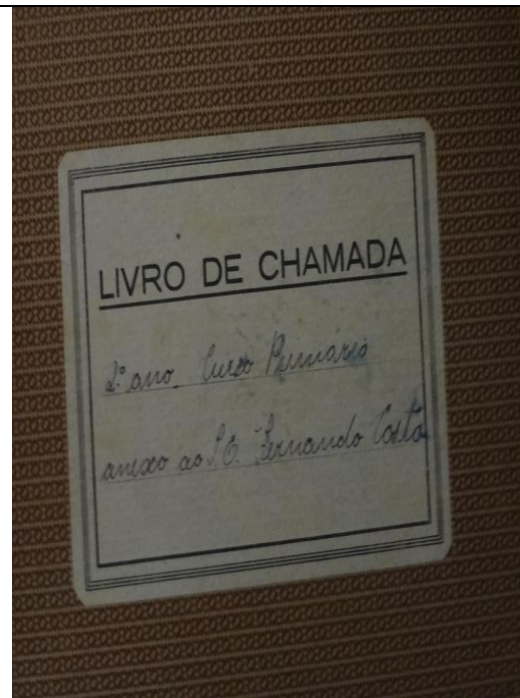 LIVRO DE CHAMADA
2º ano Curso Primário
anexo ao Fernando Costa